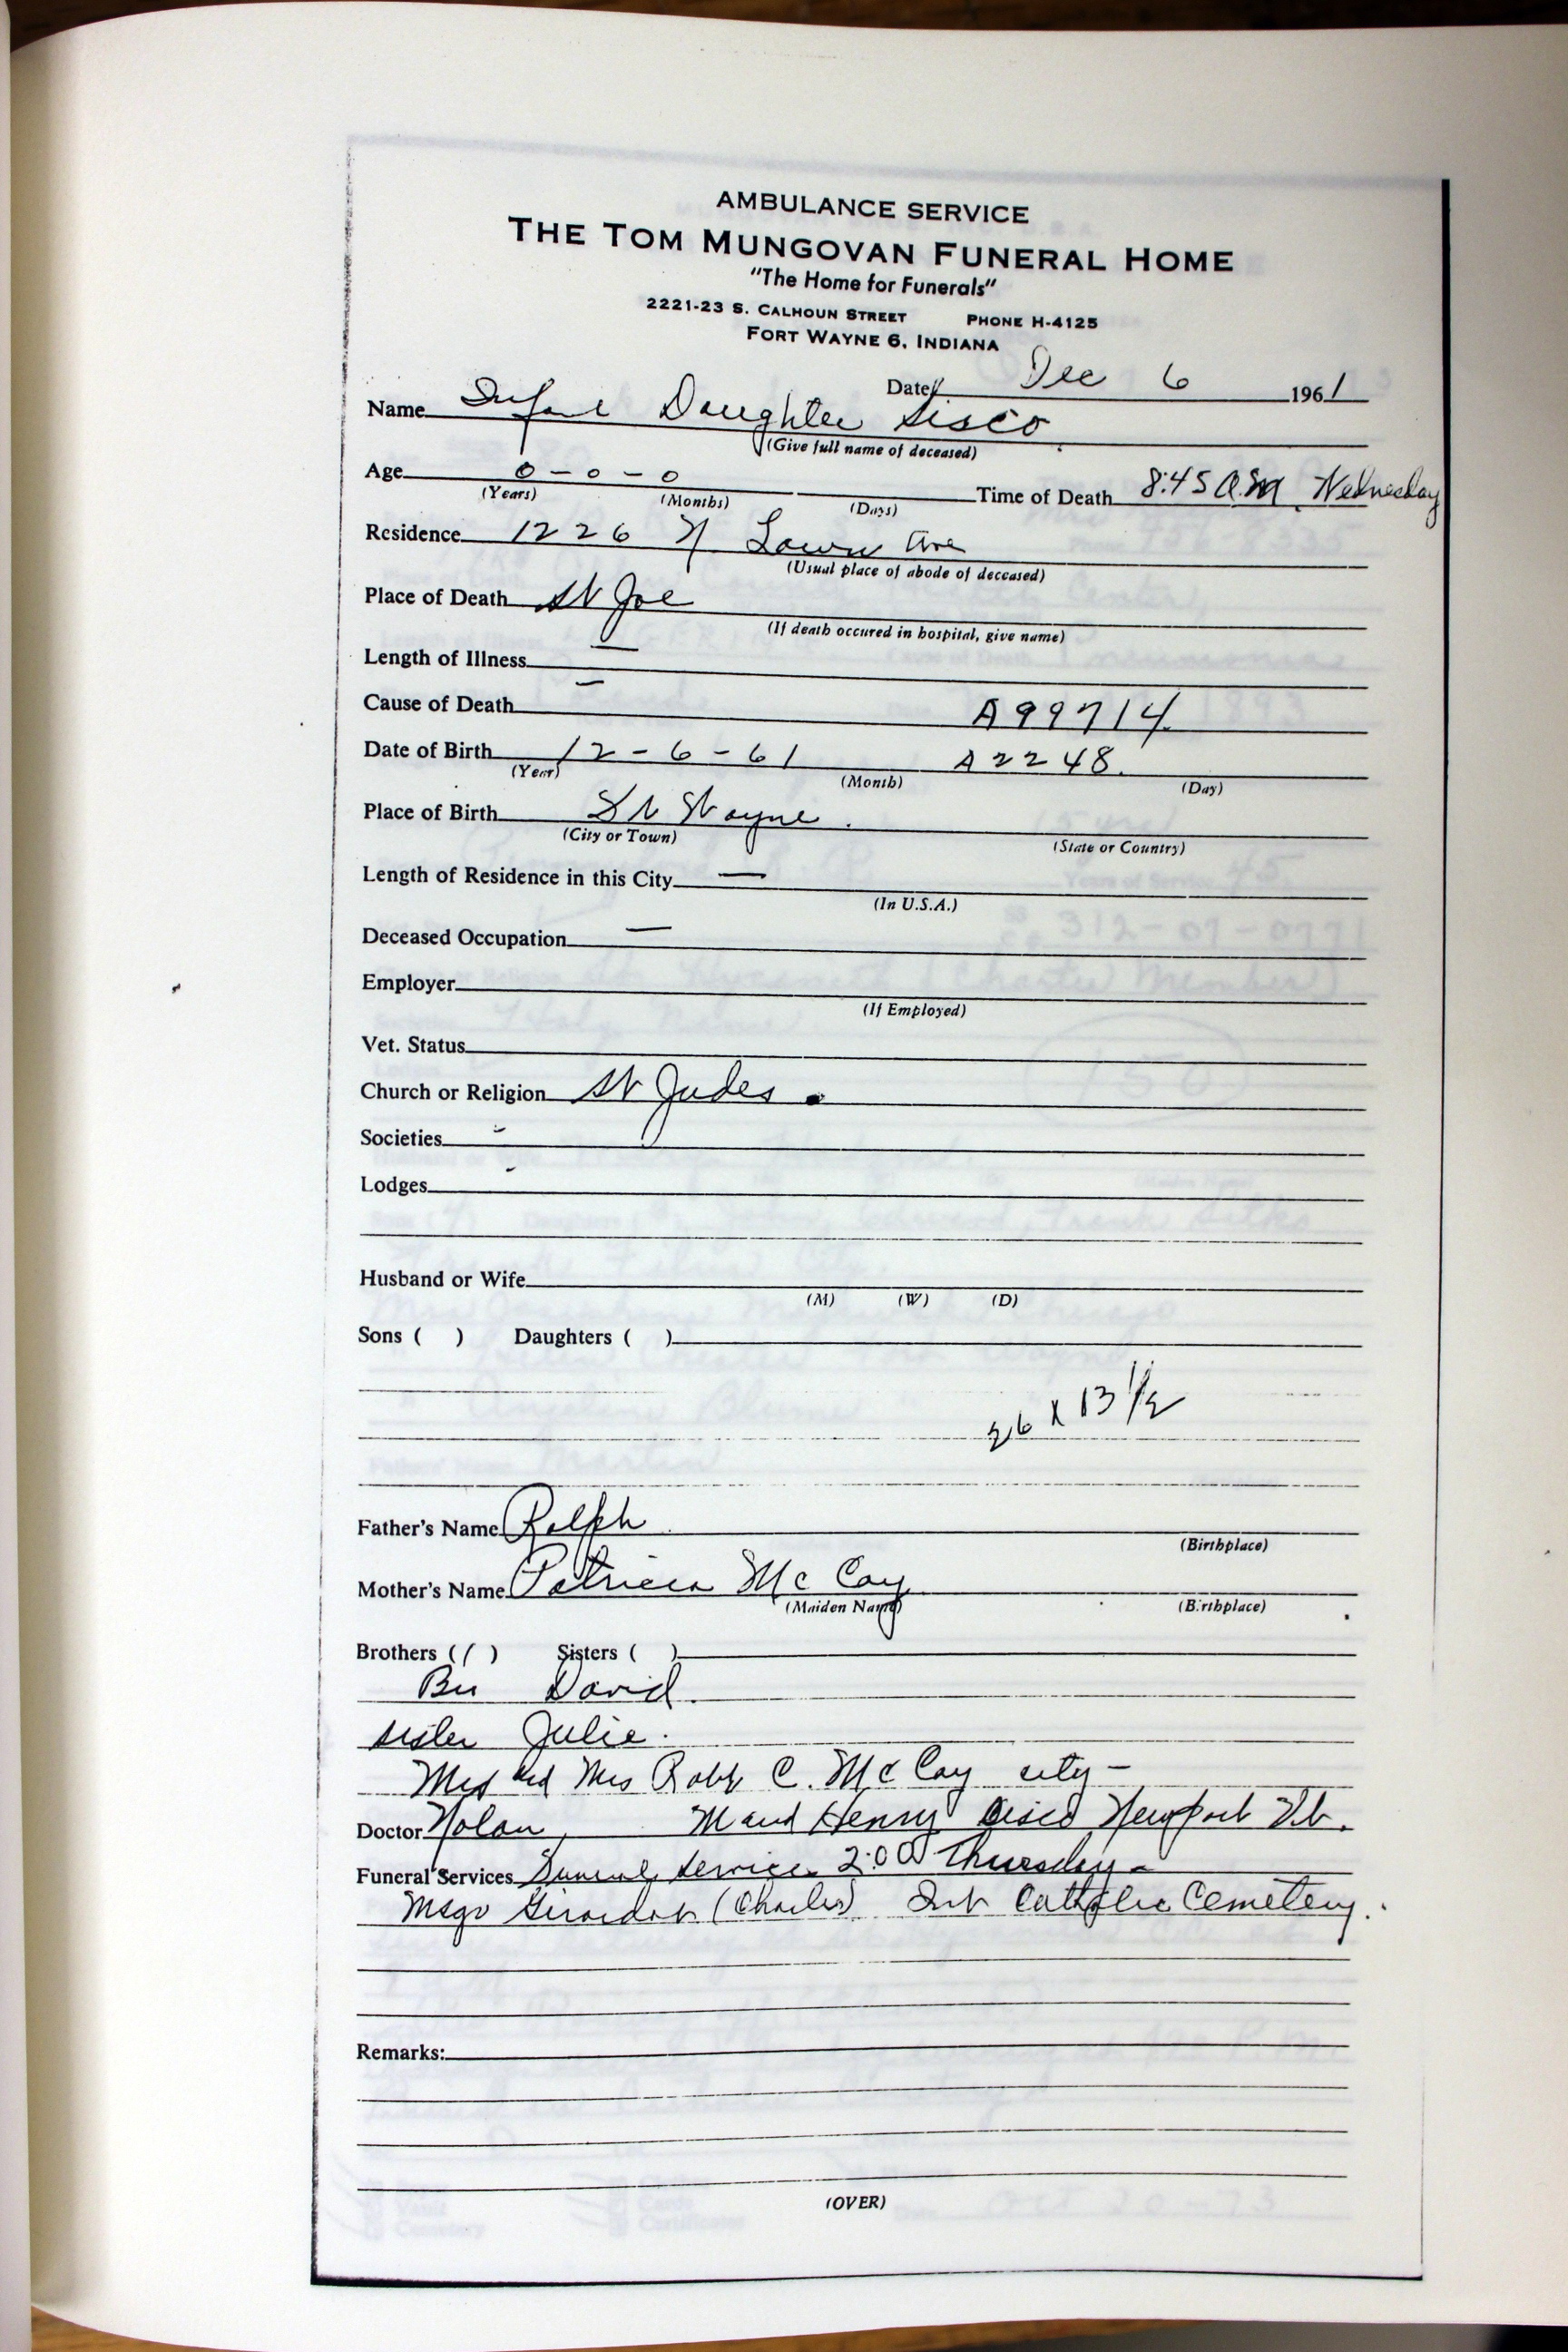 AMBULANCE SERVICE
THE TOM MUNGOVAN FUNERAL HOME
"The Home for Funerals"
2221-23 S. CALHOUN STREET PHONE H-4125
FORT WAYNE 6, INDIANA
Date Dec 6 1961
Name Infant Daughter Sisco
(Give full name of deceased)
Age 0 - 0 - 0 Time of Death 8:45 A.M. Wednesday
(Years) (Months) (Days)
Residence 1226 Ave
(Usual place of abode of deceased)
Place of Death St Joe
(If death occured in hospital, give name)
Length of Illness —
Cause of Death — A99714
Date of Birth 12-6-61 A2248.
(Year) (Month) (Day)
Place of Birth Ft Wayne.
(City or Town) (State or Country)
Length of Residence in this City —
(In U.S.A.)
Deceased Occupation —
Employer
(If Employed)
Vet. Status
Church or Religion St Judes.
Societies -
Lodges -
Husband or Wife
(M) (W) (D)
Sons ( ) Daughters ( )
26 x 13 1/2
Father's Name Ralph
(Birthplace)
Mother's Name Patricia Mc Cay
(Maiden Name) (Birthplace)
Brothers (1) Sisters ( )
Bro David.
sister Julie.
Mrs Robt C. Mc Cay city -
Doctor Nolan, Henry Sisco Newport
Funeral Services Funeral service 2:00 Thursday -
Msgr Girardot (Charles) Int Catholic Cemetery.
Remarks:
(OVER)